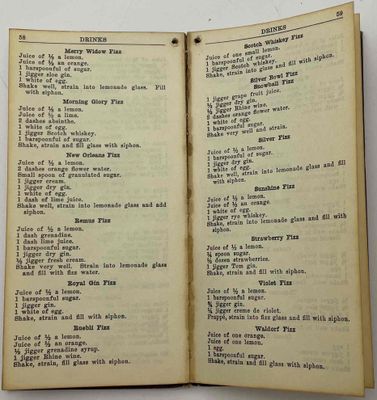 58 DRINKS
Merry Widow Fizz
Juice of ½ a lemon.
Juice of ½ an orange.
1 barspoonful of sugar.
1 jigger sloe gin.
1 white of egg.
Shake well, strain into lemonade glass. Fill
with siphon.
Morning Glory Fizz
Juice of ½ a lemon.
Juice of ½ a lime.
2 dashes absinthe.
1 white of egg.
1 jigger Scotch whiskey.
1 barspoonful of sugar.
Shake, strain and fill glass with siphon.
New Orleans Fizz
Juice of ½ a lemon.
2 dashes orange flower water.
Small spoon of granulated sugar.
1 jigger cream.
1 jigger dry gin.
1 white of egg.
1 dash of lime juice.
Shake well, strain into lemonade glass and add
siphon.
Remus Fizz
Juice of ½ a lemon.
1 dash grenadine.
1 dash lime juice.
1 barspoonful sugar.
1 jigger dry gin.
½ jigger fresh cream.
Shake very well. Strain into lemonade glass
and fill with fizz water.
Royal Gin Fizz
Juice of ½ a lemon.
1 barspoonful sugar.
1 jigger gin.
1 white of egg.
Shake, strain and fill with siphon.
Ruebli Fizz
Juice of ½ a lemon.
Juice of ½ an orange.
½ jigger grenadine syrup.
1 jigger Rhine wine.
Shake, strain, fill glass with siphon.
DRINKS 59
Scotch Whiskey Fizz
Juice of one small lemon.
1 barspoonful of sugar.
1 jigger Scotch whiskey.
Shake, strain into glass and fill with siphon.
Silver Bowl Fizz
Snowball Fizz
1 jigger grape fruit juice.
jigger dry gin.
jigger Rhine wine.
2 dashes orange flower water.
1 white of egg.
1 barspoonful of sugar.
Shake very well and strain.
Silver Fizz
Juice of ½ a lemon.
1 barspoonful of sugar.
1 jigger dry gin.
1 white of egg.
Shake well, strain into lemonade glass and fill
with siphon.
Sunshine Fizz
Juice of ½ a lemon.
Juice of ½ an orange.
1 white of egg.
1 jigger rye whiskey.
Shake, strain into lemonade glass and fill with
siphon.
Strawberry Fizz
Juice of ½ a lemon.
spoon sugar.
½ dozen strawberries.
1 jigger Tom gin.
Shake, strain and fill with siphon.
Violet Fizz
Juice of ½ a lemon.
jigger gin.
jigger creme de violet.
Frappé, strain into fizz glass and fill with siphon.
Waldorf Fizz
Juice of one orange.
Juice of one lemon.
1 egg.
1 barspoonful sugar.
Shake, strain and fill glass with siphon.